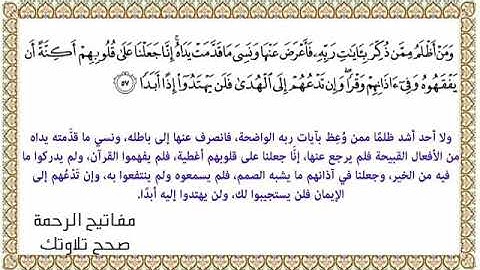 وَمَنْ أَظْلَمُ مِمَّن ذُكِّرَ بِـَٔايَـٰتِ رَبِّهِۦ فَأَعْرَضَ عَنْهَا وَنَسِىَ مَا قَدَّمَتْ يَدَاهُ ۚ إِنَّا جَعَلْنَا عَلَىٰ قُلُوبِهِمْ أَكِنَّةً أَن
يَفْقَهُوهُ وَفِىٓ ءَاذَانِهِمْ وَقْرًا ۖ وَإِن تَدْعُهُمْ إِلَى ٱلْهُدَىٰ فَلَن يَهْتَدُوٓا۟ إِذًا أَبَدًا ٥٧
ولا أحد أشد ظلمًا ممن وُعِظ بآيات ربه الواضحة، فانصرف عنها إلى باطله، ونسي ما قدَّمته يداه
من الأفعال القبيحة فلم يرجع عنها، إنَّا جعلنا على قلوبهم أغطية، فلم يفهموا القرآن، ولم يدركوا ما
فيه من الخير، وجعلنا في آذانهم ما يشبه الصمم، فلم يسمعوه ولم ينتفعوا به، وإن تَدْعُهم إلى
الإيمان فلن يستجيبوا لك، ولن يهتدوا إليه أبدًا.
مفاتيح الرحمة
صحح تلاوتك